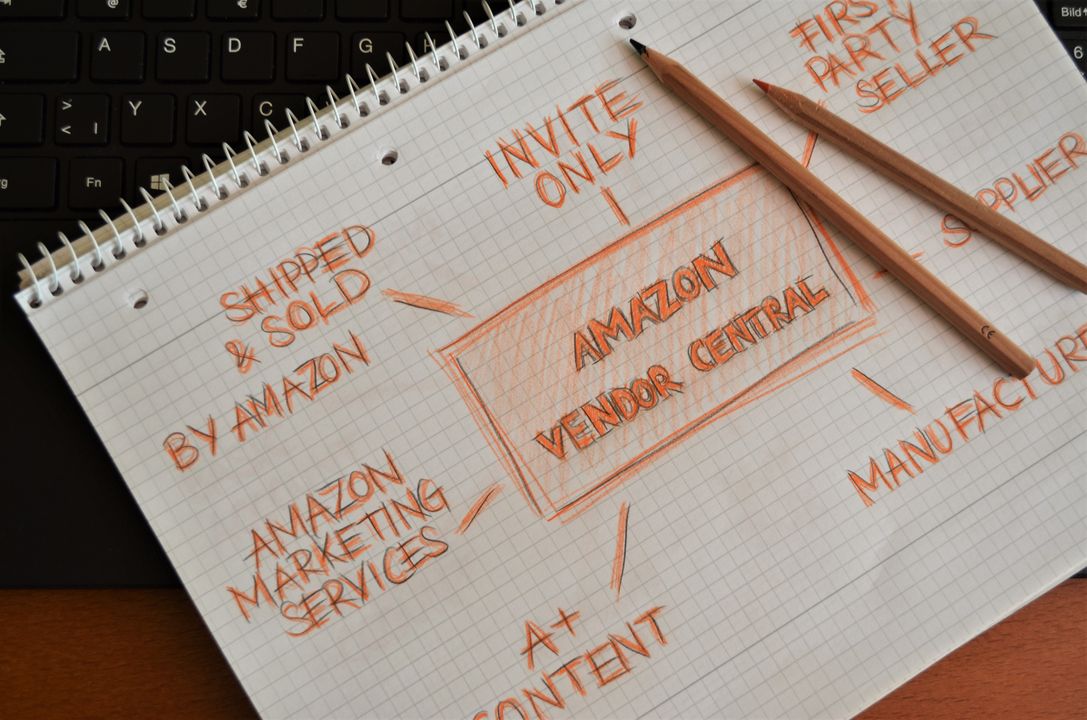 A S D F G
Y X C
Fn
Bild
6
FIRST
PARTY
SELLER
INVITE
ONLY
SUPPLIER
SHIPPED
& SOLD
BY AMAZON
AMAZON
VENDOR CENTRAL
AMAZON
MARKETING
SERVICES
A+
CONTENT